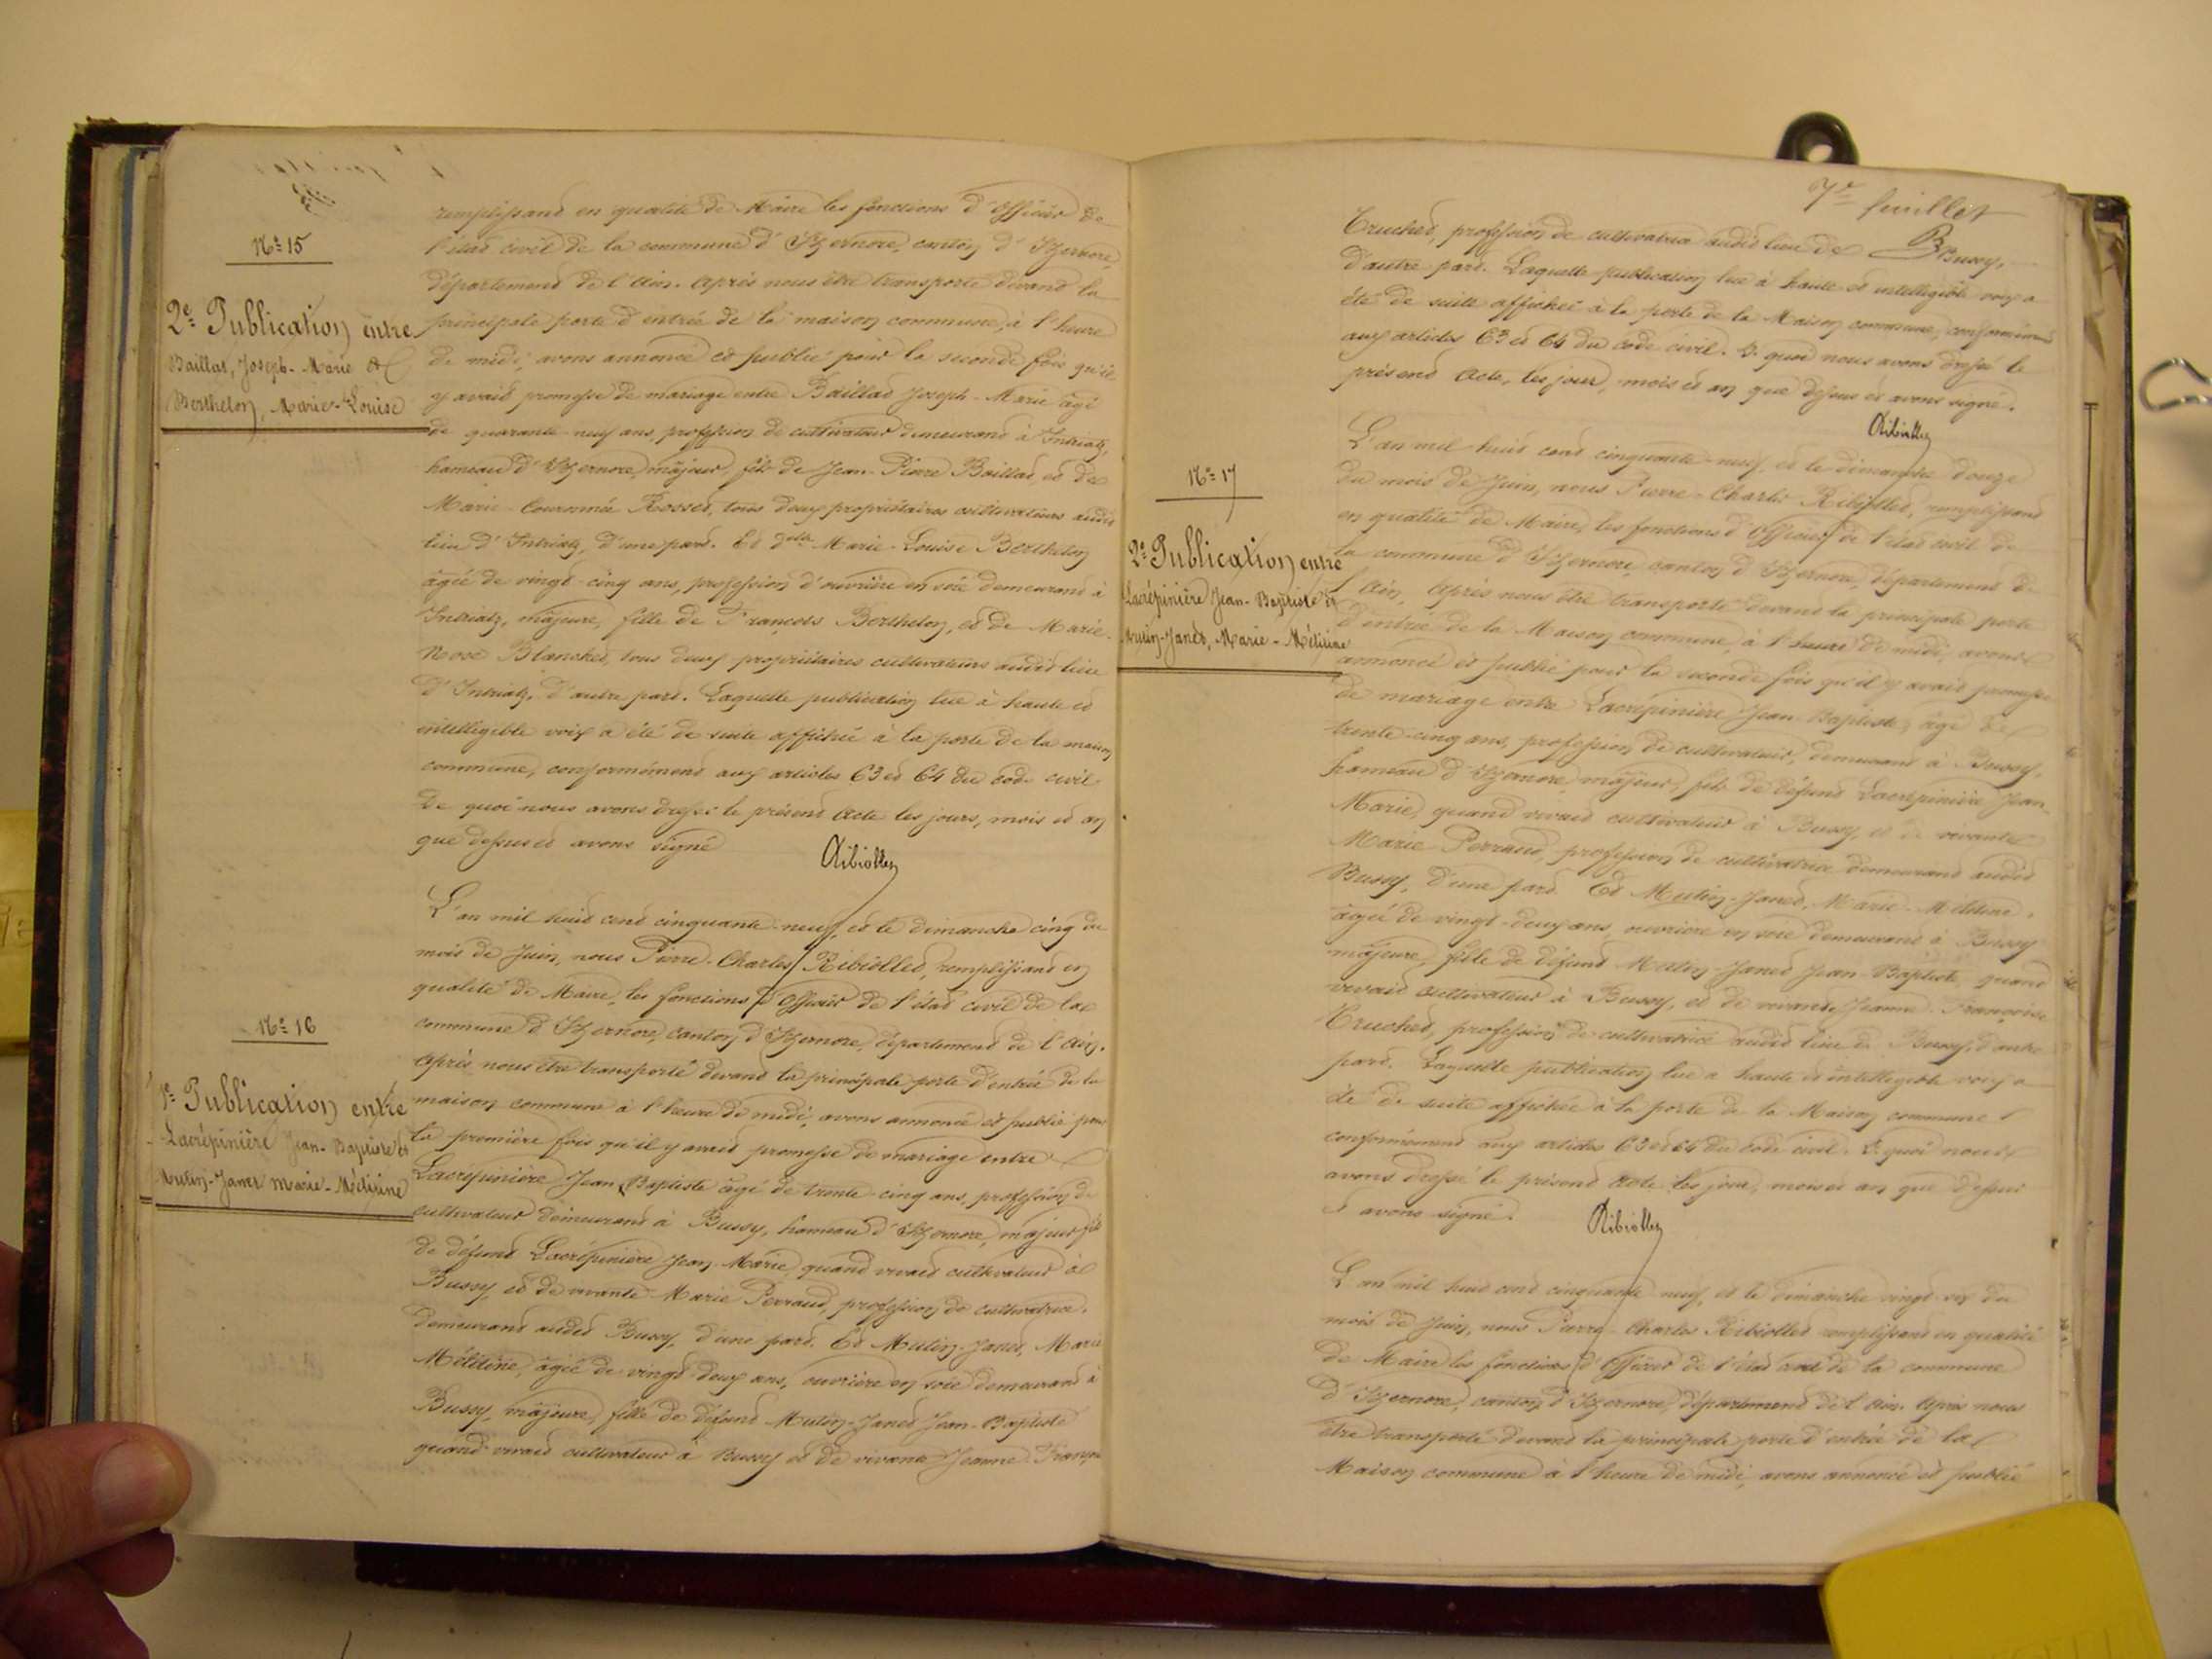 N° 15
2e Publication entre
Baillat, Joseph-Marie et
Berthelon, Marie-Louise
remplissant en qualité de Maire les fonctions d'Officier de
l'état civil de la commune d'Izernore, canton d'Izernore,
département de l'Ain. Après nous être transporté devant la
principale porte d'entrée de la maison commune, à l'heure
de midi, avons annoncé et publié pour la seconde fois qu'il
y avait promesse de mariage entre Baillat Joseph-Marie âgé
de quarante-neuf ans, profession de cultivateur demeurant à Intriatz,
hameau d'Izernore, majeur, fils de Jean-Pierre Baillat, et de
Marie-Couronnée Rosset, tous deux propriétaires cultivateurs audit
lieu d'Intriatz, d'une part. Et delle Marie-Louise Berthelon
âgée de vingt-cinq ans, profession d'ouvrière en soie demeurant à
Intriatz, majeure, fille de François Berthelon, et de Marie-
Rose Blanchet, tous deux propriétaires cultivateurs audit lieu
d'Intriatz, d'autre part. Laquelle publication lue à haute et
intelligible voix a été de suite affichée à la porte de la maison
commune, conformément aux articles 63 et 64 du code civil
De quoi nous avons dressé le présent Acte les jours, mois et an
que dessus et avons signé
Ribiollet
N° 16
1e Publication entre
Lacrépinière Jean-Baptiste et
Mutin-Janet Marie-Mélitine
L'an mil huit cent cinquante-neuf, et le dimanche cinq du
mois de Juin, nous Pierre-Charles Ribiollet, remplissant en
qualité de Maire, les fonctions d'Officier de l'état civil de la
commune d'Izernore, canton d'Izernore, département de l'Ain.
Après nous être transporté devant la principale porte d'entrée de la
maison commune à l'heure de midi, avons annoncé et publié pour
la première fois qu'il y avait promesse de mariage entre
Lacrépinière Jean-Baptiste âgé de trente-cinq ans, profession de
cultivateur demeurant à Bussy, hameau d'Izernore, majeur fils
de défunt Lacrépinière Jean-Marie, quand vivait cultivateur à
Bussy, et de vivante Marie Perraud, profession de cultivatrice.
demeurant audit Bussy, d'une part. Et Mutin-Janet, Marie
Mélitine, âgée de vingt-deux ans, ouvrière en soie demeurant à
Bussy, majeure, fille de défunt Mutin-Janet Jean-Baptiste
quand vivait cultivateur à Bussy et de vivante Jeanne-Françoise
7e feuillet
Truchet, profession de cultivatrice audit lieu de Bussy,
d'autre part. Laquelle publication lue à haute et intelligible voix a
été de suite affichée à la porte de la Maison commune, conformément
aux articles 63 et 64 du code civil. De quoi nous avons dressé le
présent Acte, les jour, mois et an que dessus et avons signé.
Ribiollet
N° 17
2e Publication entre
Lacrépinière Jean-Baptiste et
Mutin-Janet, Marie-Mélitine
L'an mil huit cent cinquante-neuf, et le dimanche douze
du mois de Juin, nous Pierre-Charles Ribiollet, remplissant
en qualité de Maire, les fonctions d'Officier de l'état civil de
la commune d'Izernore, canton d'Izernore, département de
l'Ain. Après nous être transporté devant la principale porte
d'entrée de la Maison commune, à l'heure de midi, avons
annoncé et publié pour la seconde fois qu'il y avait promesse
de mariage entre Lacrépinière Jean-Baptiste, âgé de
trente-cinq ans, profession de cultivateur, demeurant à Bussy,
hameau d'Izernore, majeur, fils de défunt Lacrépinière Jean-
Marie, quand vivait cultivateur à Bussy, et de vivante
Marie Perraud, profession de cultivatrice demeurant audit
Bussy, d'une part. Et Mutin-Janet, Marie-Mélitine.
âgée de vingt-deux ans, ouvrière en soie demeurant à Bussy
majeure, fille de défunt Mutin-Janet Jean-Baptiste, quand
vivait cultivateur à Bussy, et de vivante Jeanne-Françoise
Truchet, profession de cultivatrice audit lieu de Bussy, d'autre
part. Laquelle publication lue à haute et intelligible voix a
été de suite affichée à la porte de la Maison commune
conformément aux articles 63 et 64 du code civil. De quoi nous
avons dressé le présent Acte les jour, mois et an que dessus
et avons signé.
Ribiollet
L'an mil huit cent cinquante neuf, et le dimanche vingt-six du
mois de Juin, nous Pierre-Charles Ribiollet remplissant en qualité
de Maire les fonctions d'Officier de l'état civil de la commune
d'Izernore, canton d'Izernore, département de l'Ain. Après nous
être transporté devant la principale porte d'entrée de la
Maison commune à l'heure de midi, avons annoncé et publié